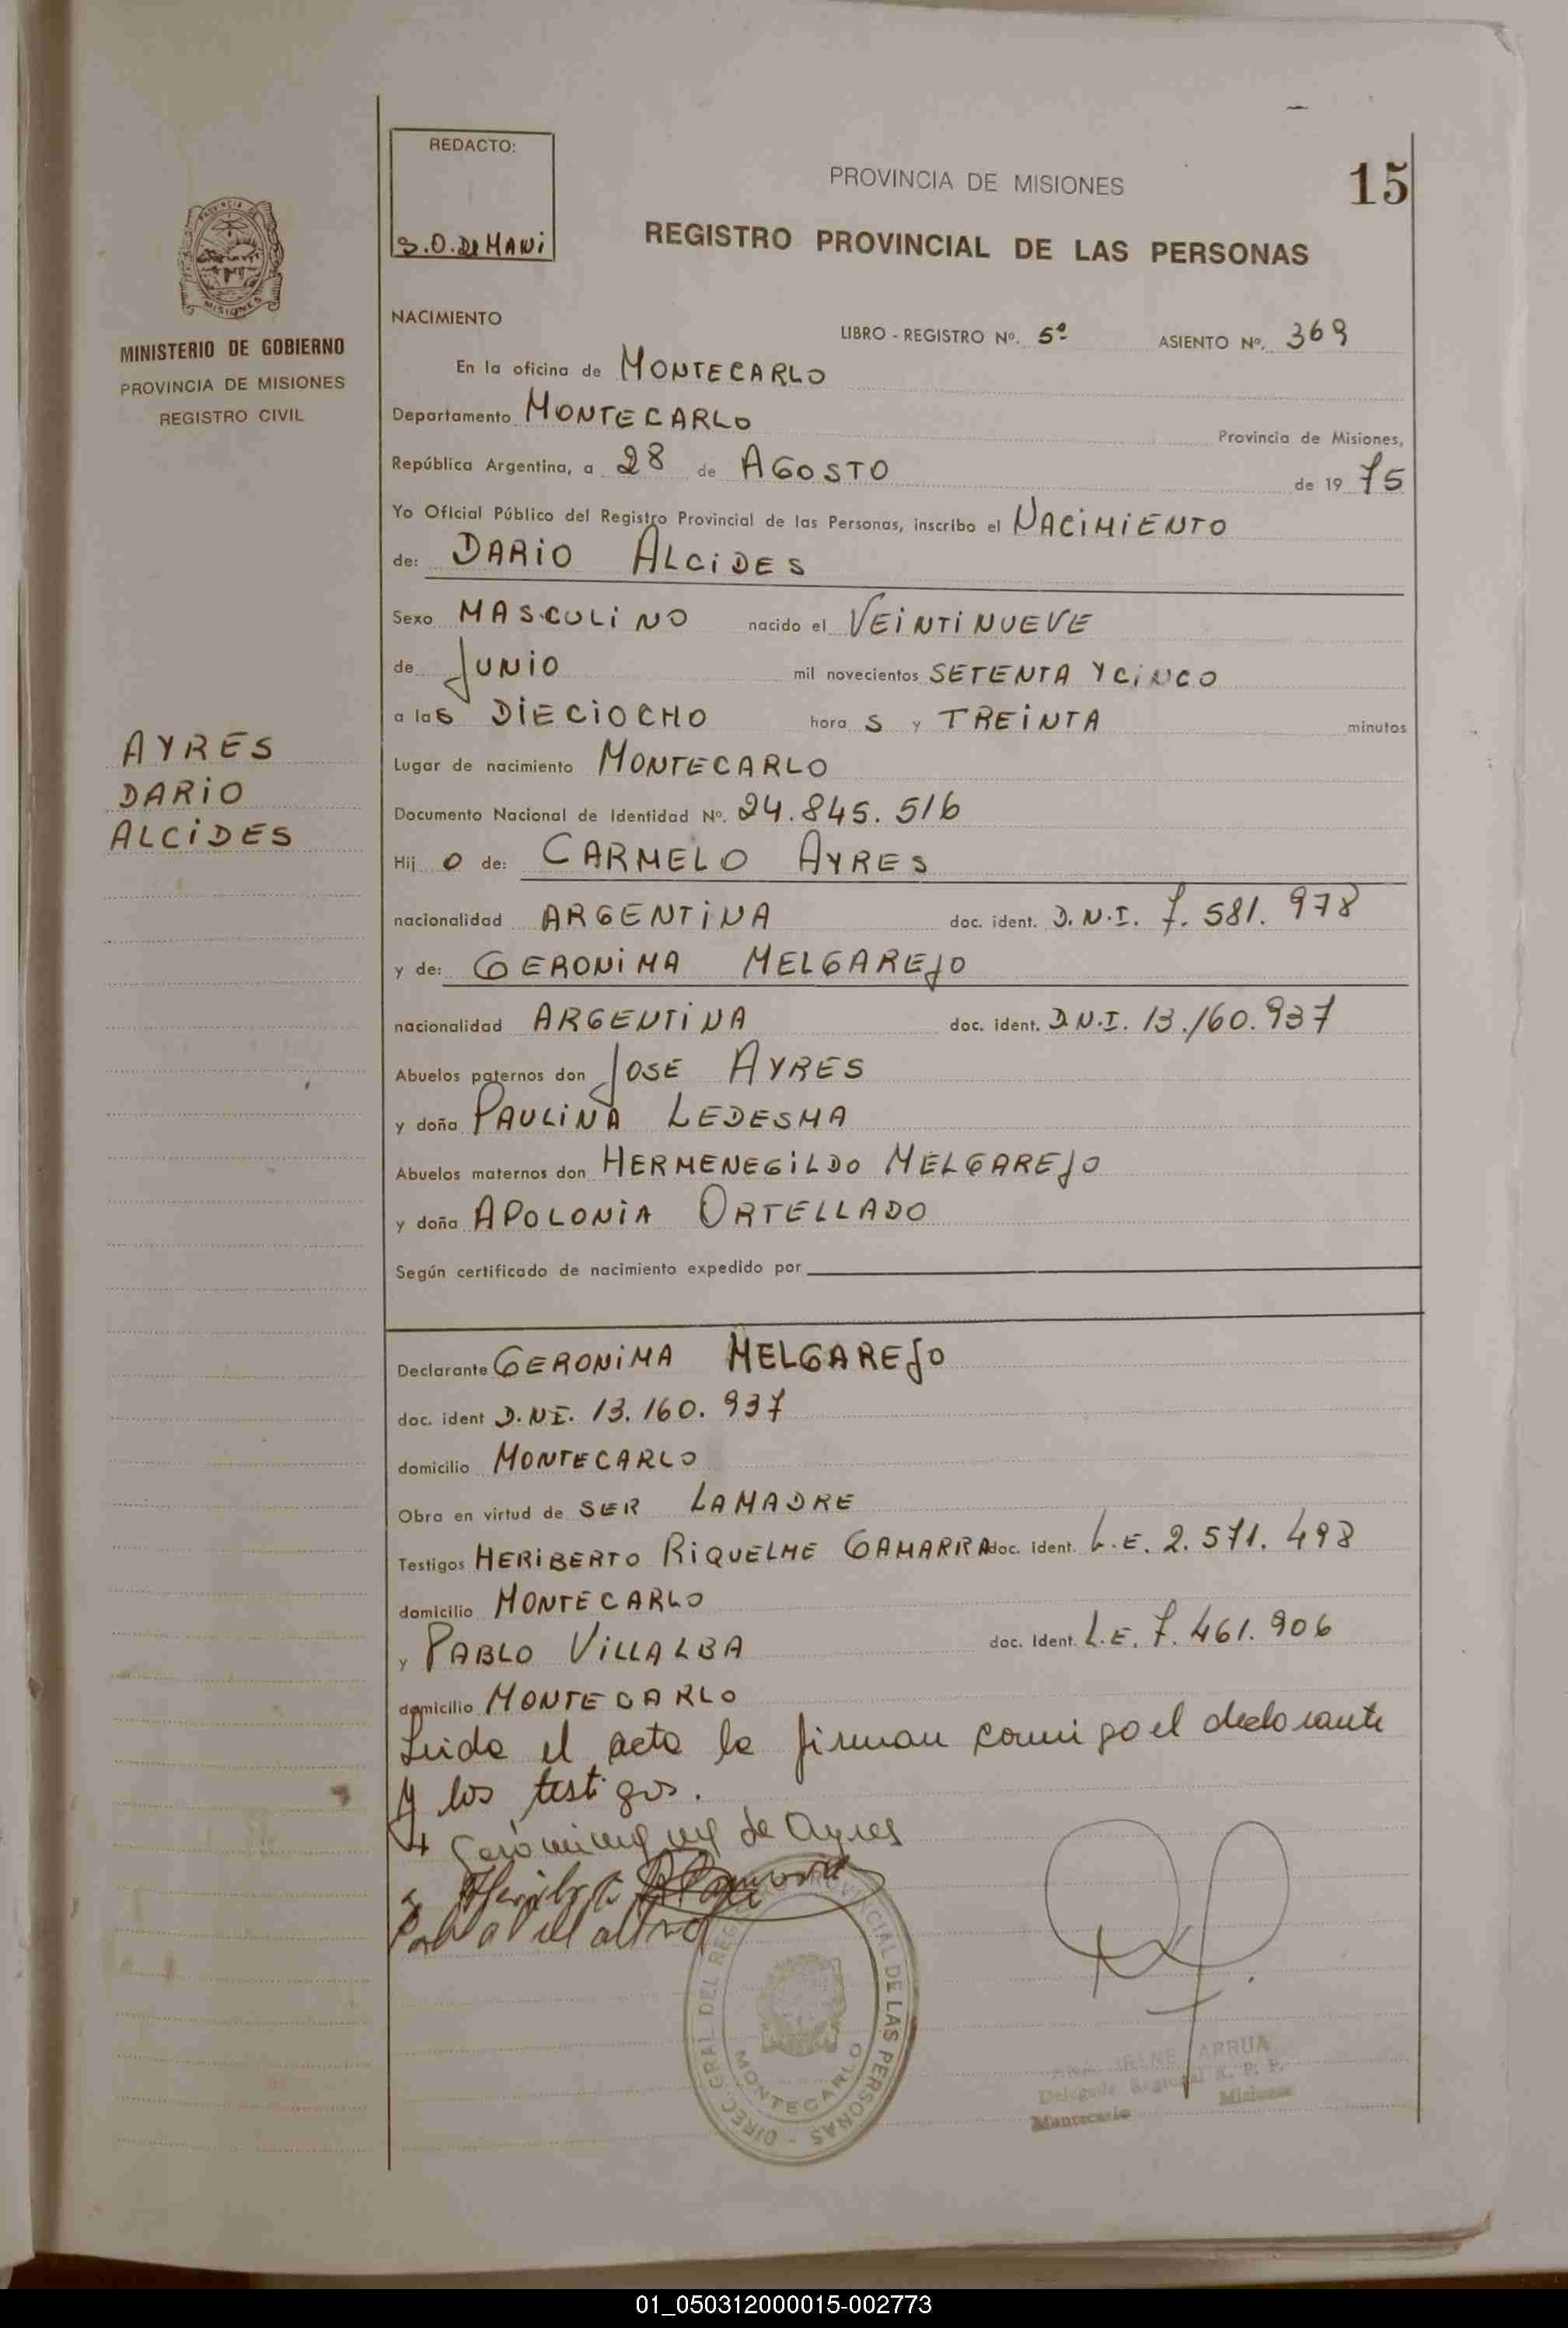 REDACTO:
S.O. DE MANI
PROVINCIA DE MISIONES
15
REGISTRO PROVINCIAL DE LAS PERSONAS
MINISTERIO DE GOBIERNO
PROVINCIA DE MISIONES
REGISTRO CIVIL
AYRES
DARIO
ALCIDES
NACIMIENTO
LIBRO - REGISTRO Nº. 5º ASIENTO Nº. 369
En la oficina de MONTECARLO
Departamento MONTECARLO Provincia de Misiones,
República Argentina, a 28 de AGOSTO de 1975
Yo Oficial Público del Registro Provincial de las Personas, inscribo el NACIMIENTO
de: DARIO ALCIDES
Sexo MASCULINO nacido el VEINTINUEVE
de JUNIO mil novecientos SETENTA Y CINCO
a las DIECIOCHO hora s y TREINTA minutos
Lugar de nacimiento MONTECARLO
Documento Nacional de Identidad Nº. 24.845.516
Hij o de: CARMELO AYRES
nacionalidad ARGENTINA doc. ident. D.N.I. 7.581.978
y de: GERONIMA MELGAREJO
nacionalidad ARGENTINA doc. ident. D.N.I. 13.160.937
Abuelos paternos don JOSE AYRES
y doña PAULINA LEDESMA
Abuelos maternos don HERMENEGILDO MELGAREJO
y doña APOLONIA ORTELLADO
Según certificado de nacimiento expedido por
Declarante GERONIMA MELGAREJO
doc. ident D.N.I. 13.160.937
domicilio MONTECARLO
Obra en virtud de SER LA MADRE
Testigos HERIBERTO RIQUELME GAMARRA doc. ident. L.E. 2.571.498
domicilio MONTECARLO
y PABLO VILLALBA doc. ident. L.E. 7.461.906
domicilio MONTECARLO
Leida el acta la firman conmigo el declarante
y los testigos.
de Ayres
DIREC. GRAL. DEL REGISTRO PROVINCIAL DE LAS PERSONAS -
MONTECARLO
IRENE ARRUA
Delegada Regional R. P. P.
Montecarlo Misiones
01_050312000015-002773